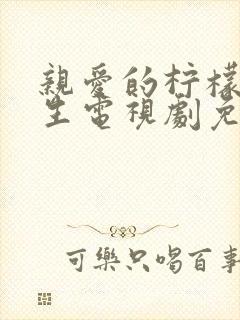 親愛的柠檬
生電視劇免
可樂只喝百事